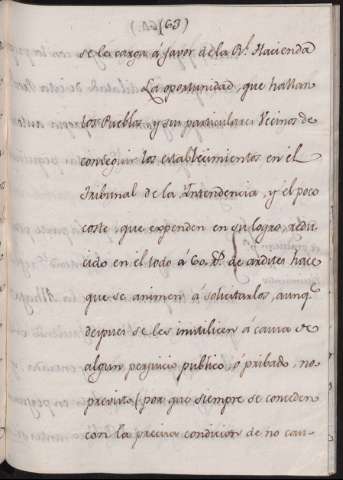 (63)
se le carga á favor de la Rl. Hacienda
La oportunidad, que hallan
los Pueblos, y sus particulares Vecinos de
conseguir los establecimientos en él
Tribunal de la Yntendencia, y el poco
coste, que expenden en su logro, redu-
cido en él todo á 60. de ardites hace
que se animen á solicitarlos, aunq.
despues se les inutilicen á causa de
algun perjuicio publico, ó pribado, no
previsto (por que siempre se conceden
con la precisa condicion de no cau-